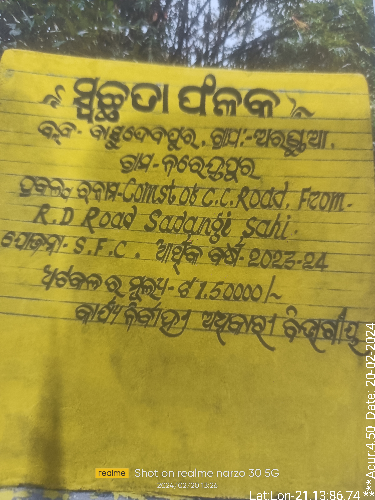 ସ୍ୱଚ୍ଛତା ଫଳକ
ବ୍ଳକ- ବାସୁଦେବପୁର, ଗ୍ରା.ପ:-ଅରସ୍ତୁଆ,
ଗ୍ରାମ- ନରେନ୍ଦ୍ରପୁର
ପ୍ରକଳ୍ପ ର ନାମ-Comst of C.C. Road. From-
R.D Road Sadangi Sahi.
ଯୋଜନା- S.F.C. ଆର୍ଥିକ ବର୍ଷ- 2023-24
ଅଟକଳ ର ମୂଲ୍ୟ- ₹ 1.50000/~
କାର୍ଯ୍ୟ ନିର୍ବାହୀ ଅଧିକାରୀ ବିଭାଗୀୟ
realme Shot on realme narzo 30 5G
Lat:Lon-21.13:86.74 **
**Acur:4.50 Date: 20-02-2024